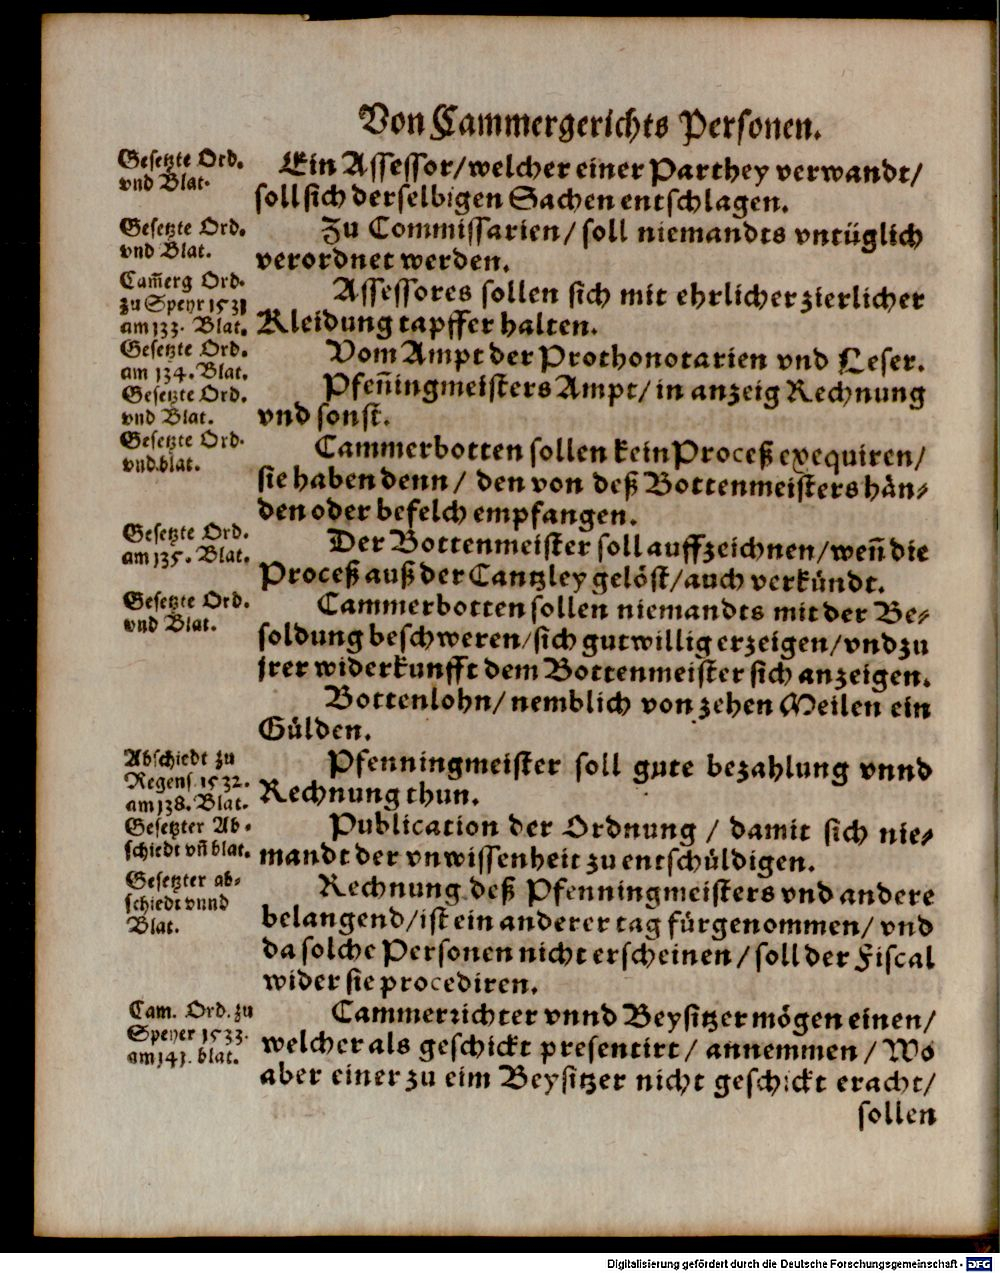 Von Cammergerichts Personen.
Gesetzte Ord.
vnd Blat.
Ein Assessor/welcher einer Parthey verwandt/
soll sich derselbigen Sachen entschlagen.
Gesetzte Ord.
vnd Blat.
Zu Commissarien/ soll niemandts vntüglich
verordnet werden.
Cam̃erg Ord.
zu Speyr 1531
am 133. Blat.
Assessores sollen sich mit ehrlicher zierlicher
Kleidung tapffer halten.
Gesetzte Ord.
am 134. Blat.
Vom Ampt der Prothonotarien vnd Leser.
Gesetzte Ord.
vnd Blat.
Pfen̄ingmeisters Ampt/ in anzeig Rechnung
vnd sonst.
Gesetzte Ord.
vnd.blat.
Cammerbotten sollen kein Proceß exequiren/
sie haben denn/ den von deß Bottenmeisters hän-
den oder befelch empfangen.
Gesetzte Ord.
am 135. Blat.
Der Bottenmeister soll auffzeichnen/wen̄ die
Proceß auß der Cantzley gelöst/auch verkündt.
Gesetzte Ord.
vnd Blat.
Cammerbotten sollen niemandts mit der Be-
soldung beschweren/sich gutwillig erzeigen/vnd zu
jrer widerkunfft dem Bottenmeister sich anzeigen.
Bottenlohn/ nemblich von zehen Meilen ein
Gülden.
Abschiedt zu
Regens 1532.
am 138. Blat.
Pfenningmeister soll gute bezahlung vnnd
Rechnung thun.
Gesetzter Ab-
schiedt vn̄ blat.
Publication der Ordnung / damit sich nie-
mandt der vnwissenheit zu entschüldigen.
Gesetzter ab-
schiedt vnnd
Blat.
Rechnung deß Pfenningmeisters vnd andere
belangend/ist ein anderer tag fürgenommen/ vnd
da solche Personen nicht erscheinen/ soll der Fiscal
wider sie procediren.
Cam. Ord. zu
Speyer 1533.
am 141. blat.
Cammerrichter vnnd Beysitzer mögen einen/
welcher als geschickt presentirt/ annemmen/ Wo
aber einer zu eim Beysitzer nicht geschickt eracht/
sollen
Digitalisierung gefördert durch die Deutsche Forschungsgemeinschaft - DFG